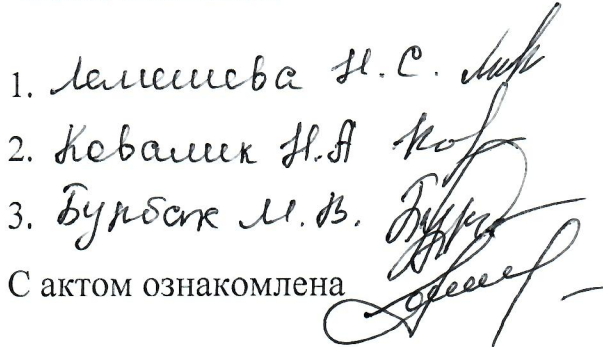 1. Лемешева Н. С.
2. Ковалик Н.А
3. Бурбак М. В.
С актом ознакомлена